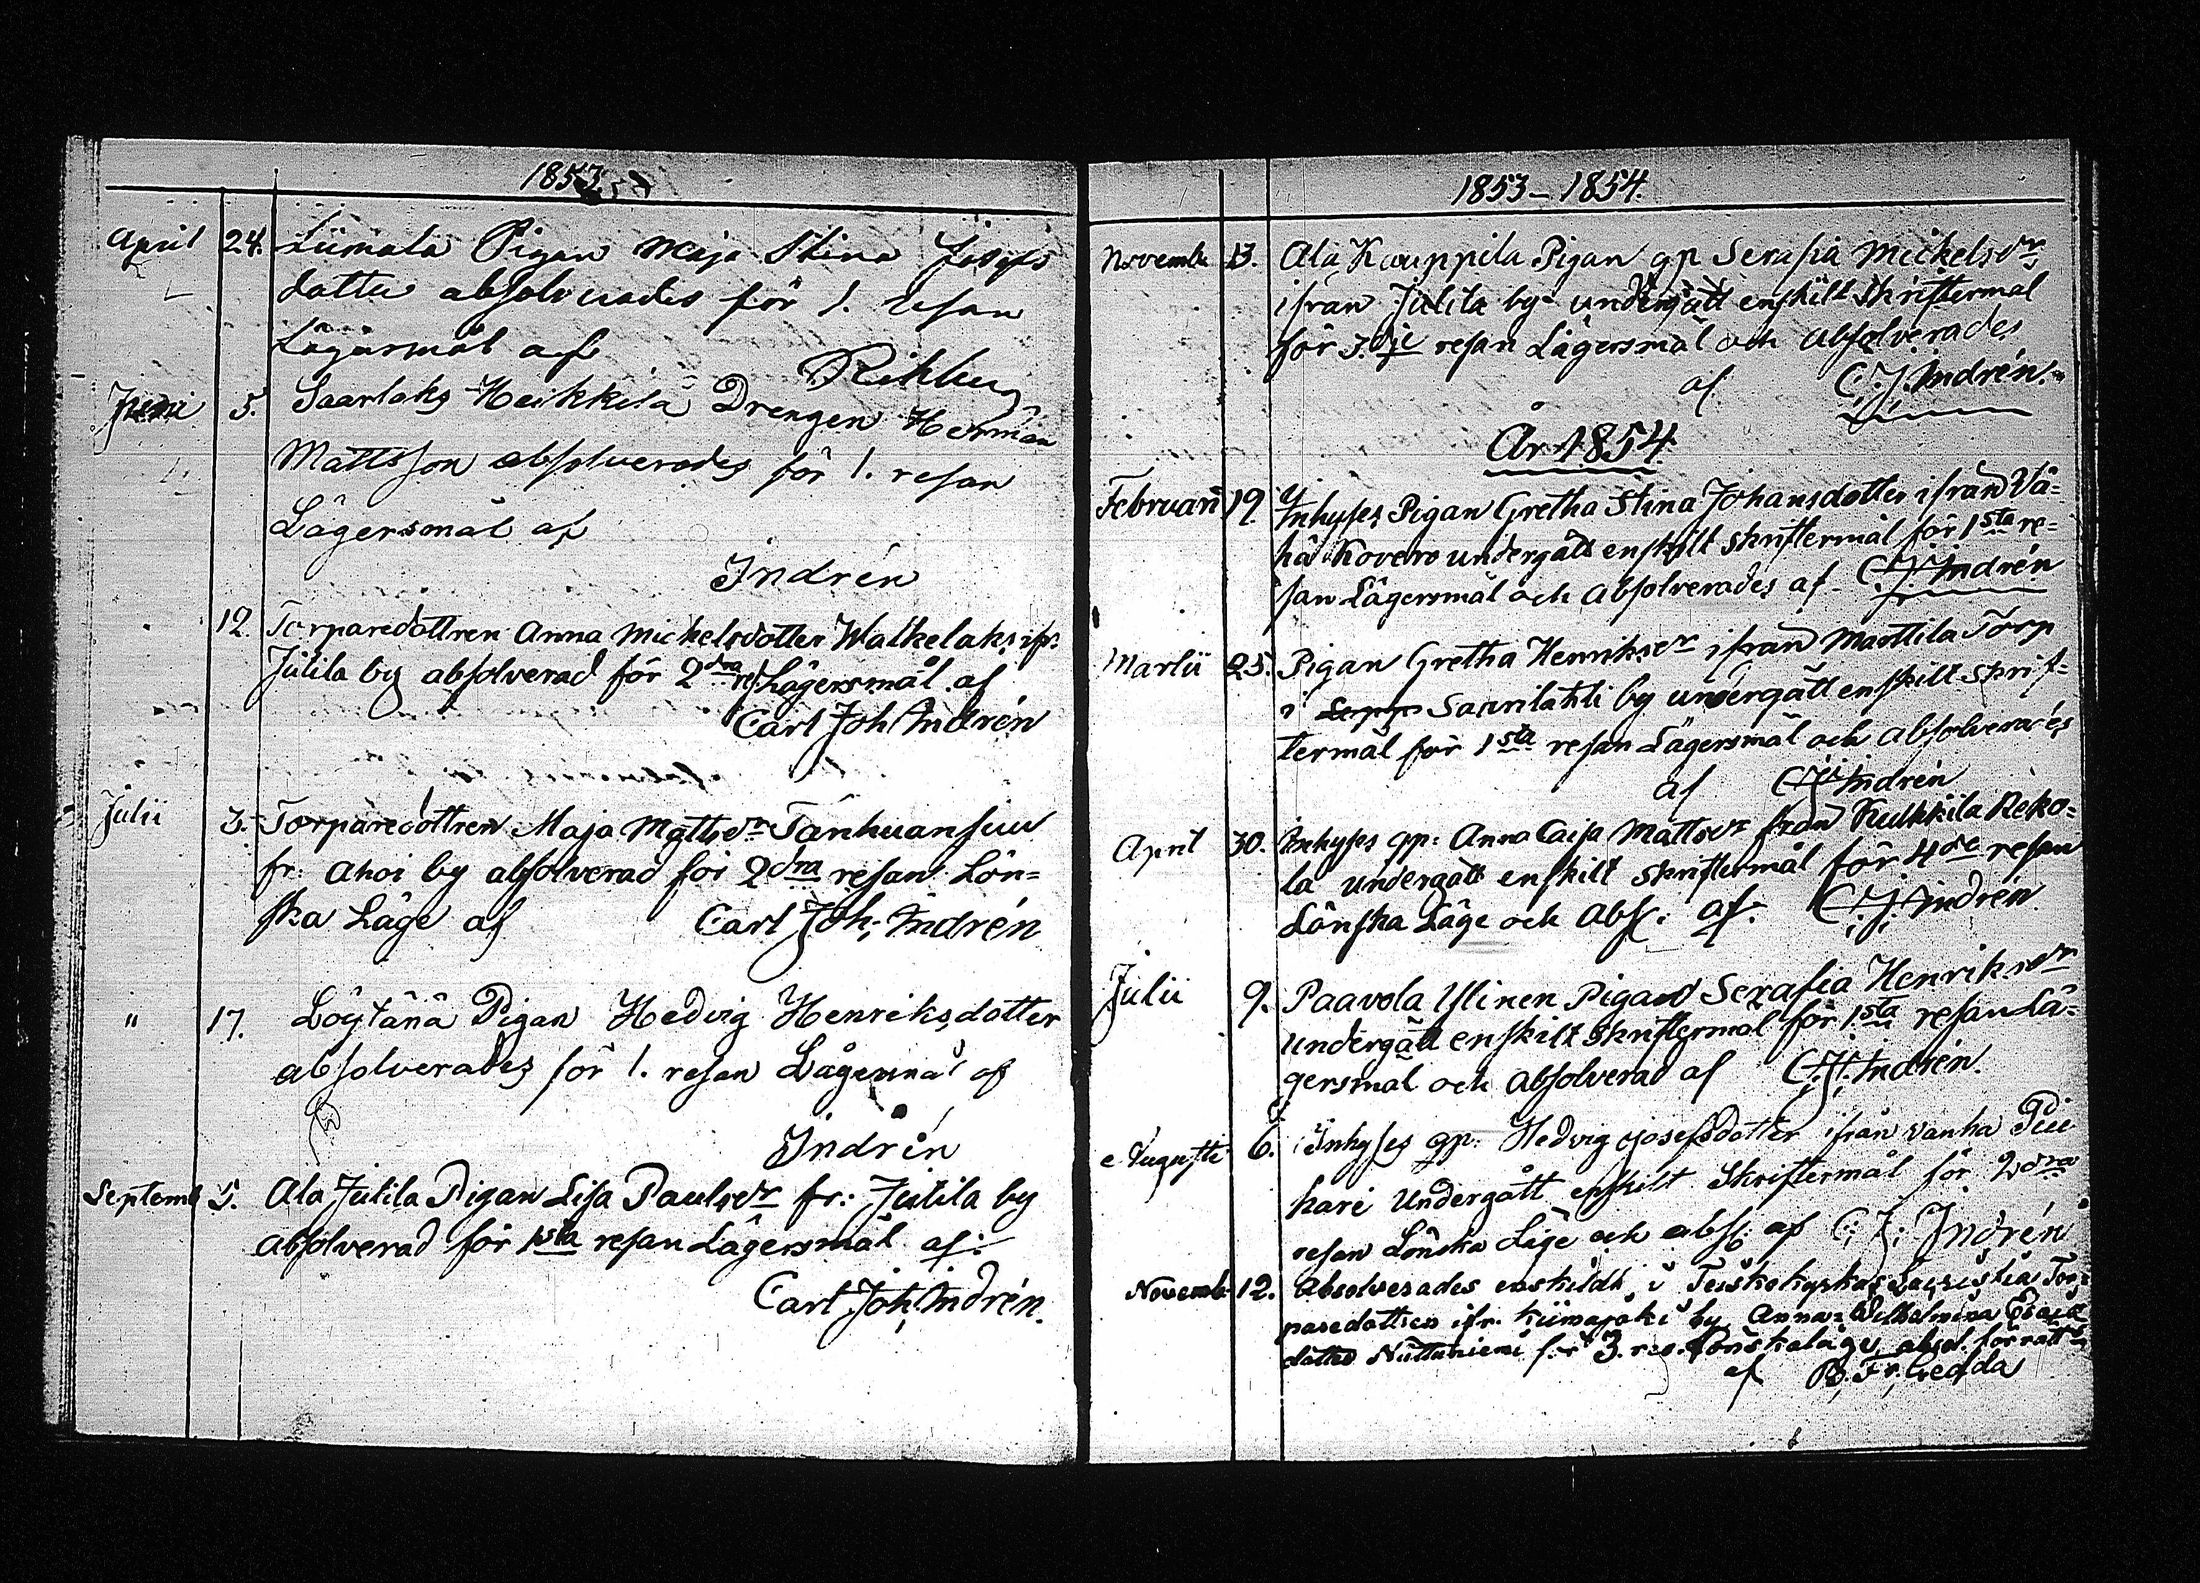 1853
April 24. Liimala Pigan Maja Stina Josefs
dotter absolverades för 1. resan
Lägersmål af
Juni 5. Saarlaks Heikkilä Drengen Herman
Mattsson absolverades för 1. resan
Lägersmål af
Indrén
12. Torparedottren Anna Michelsdotter Walkelaks, ifr.
Julila by absolverad för 2dra res. Lägersmål af
Carl Joh. Indrén
Julii 3. Torparedottren Maja Mattsdr Tanhuansuu
fr: Ahoi by absolverad för 2dra resan Lön=
ska Läge af Carl Joh: Indrén
" 17. Löytänä Pigan Hedvig Henriksdotter
absolverades för 1. resan Lägersmål af
Indrén
Septemb 5. Ala Julila Pigan Lisa Paulsdr fr: Julila by
absolverad för 1sta resan Lägersmål af:
Carl Joh; Indrén.
1853–1854.
Novemb 13. Ala Kauppila Pigan qp Serafia Mickelsdr
ifrån Julila by undergått enskilt Skriftermål
för 3.dje resan Lägersmål och Absolverades
af C.J. Indrén.
År 1854
Februari 19. Inhyses Pigan Gretha Stina Johansdotter ifrån Vä=
hä Kovero undergått enskilt skriftermål för 1sta re=
san Lägersmål och Absolverades af C.J. Indrén
Martii 25. Pigan Gretha Henriksdr ifrån Mattila Torp
i Saurilahti by undergått enskilt skrif=
termål för 1sta resan Lägersmål och Absolverades
af C.J. Indrén
April 30. Inhyses qp: Anna Caisa Mattsdr från Kulkkila Reko=
la undergått enskilt skriftermål för 4de resan
Lönska Läge och Abs: af: C.J. Indrén
Julii 9. Paavola Ylinen Pigan Serafia Henriksdr
undergått enskilt skriftermål för 1sta resan Lä=
gersmål och absolverad af C.J. Indrén.
Augusti 6. Inhyses qp: Hedvig Josefsdotter ifrån Vanha Pii
hari Undergått enskilt Skriftermål för 2dra
resan Lönska Läge och abs: af C: J: Indrén
Novemb 12. Absolverades enskildt i Teisko kyrkas Sacristia Tor=
paredottren ifr. Kiimajoki by Anna Wilhelmina Esaias
dotter för 3. res. Lönskaläge, absol. förrättad
af B. Fr. Gedda